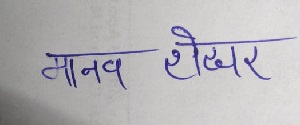 मानव शेखर